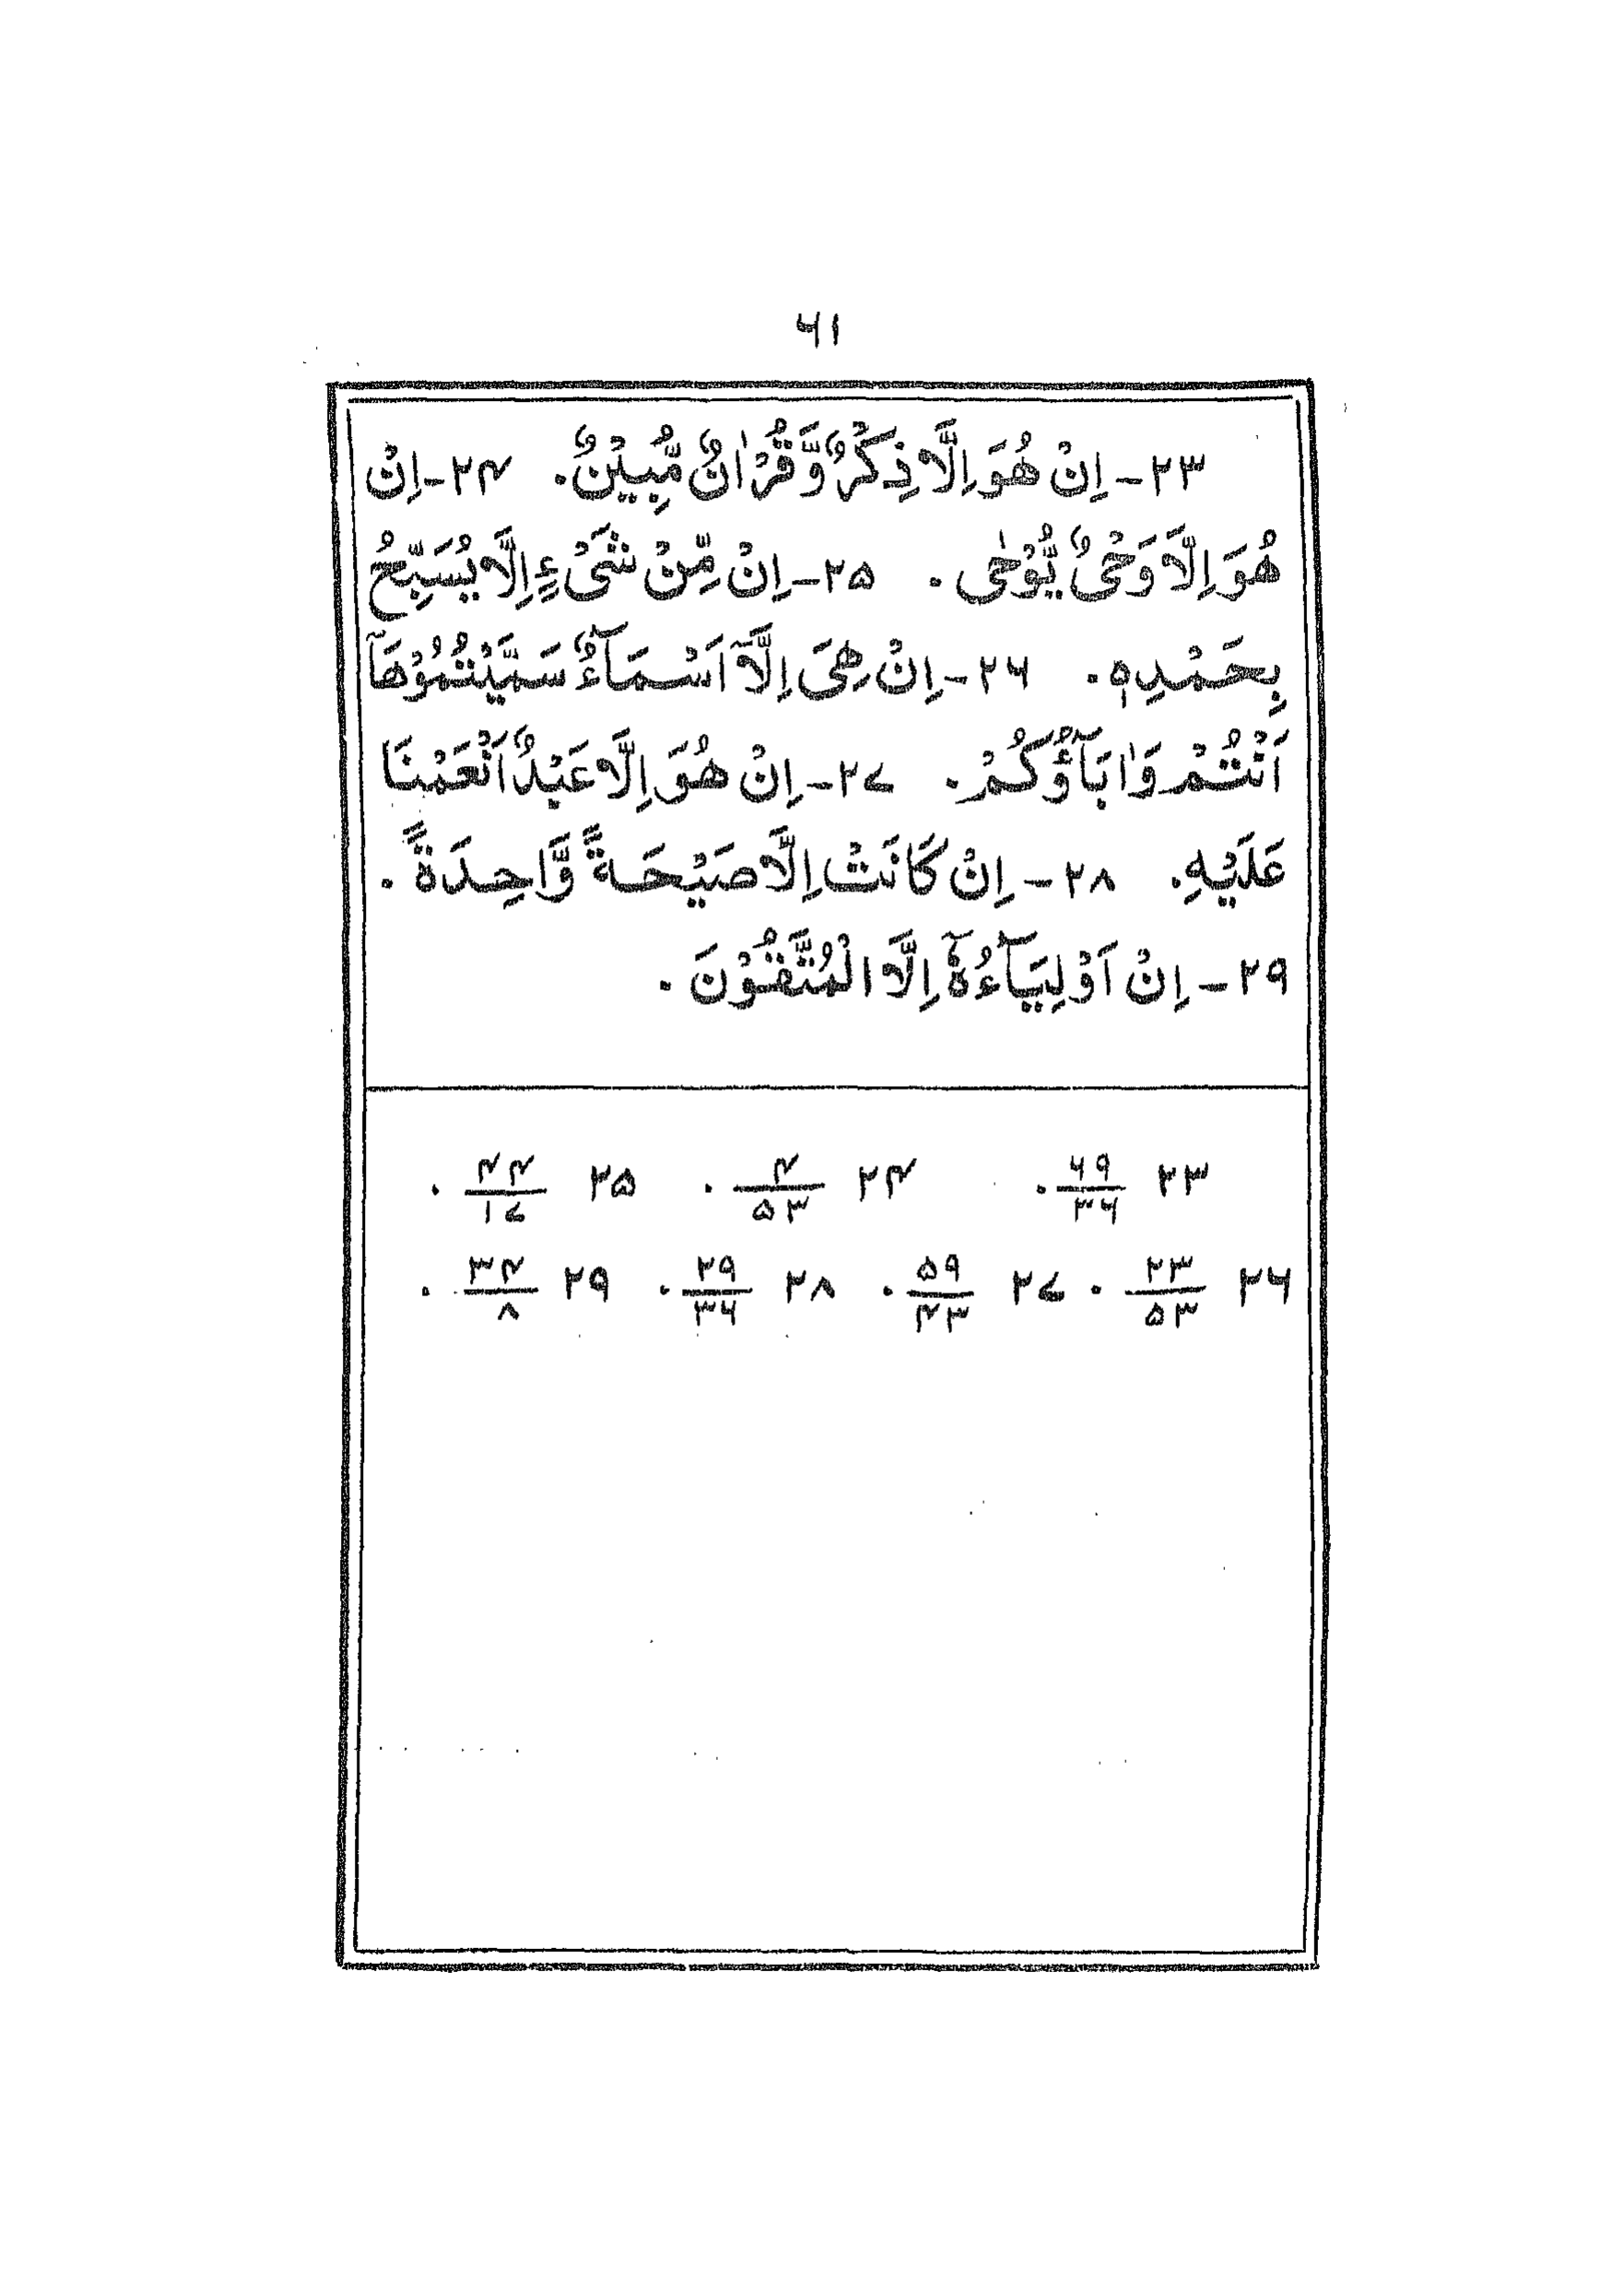 ۶۱
۲۳- اِنْ هُوَ اِلَّا ذِكْرٌ وَّ قُرْاٰنٌ مُّبِيْنٌ. ۲۴- اِنْ
هُوَ اِلَّا وَحْیٌ يُّوْحٰی. ۲۵- اِنْ مِّنْ شَیْءٍ اِلَّا يُسَبِّحُ
بِحَمْدِهٖ. ۲۶- اِنْ هِیَ اِلَّآ اَسْمَآءٌ سَمَّيْتُمُوْهَآ
اَنْتُمْ وَاٰبَآؤُكُمْ. ۲۷- اِنْ هُوَ اِلَّا عَبْدٌ اَنْعَمْنَا
عَلَيْهِ. ۲۸- اِنْ كَانَتْ اِلَّا صَيْحَةً وَّاحِدَةً.
۲۹- اِنْ اَوْلِيَآءُهٗٓ اِلَّا الْمُتَّقُوْنَ.
۲۳ ۶۹/۳۶. ۲۴ ۴/۵۳. ۲۵ ۴۴/۱۷.
۲۶ ۲۳/۵۳. ۲۷ ۵۹/۴۳. ۲۸ ۲۹/۳۶. ۲۹ ۳۴/۸.